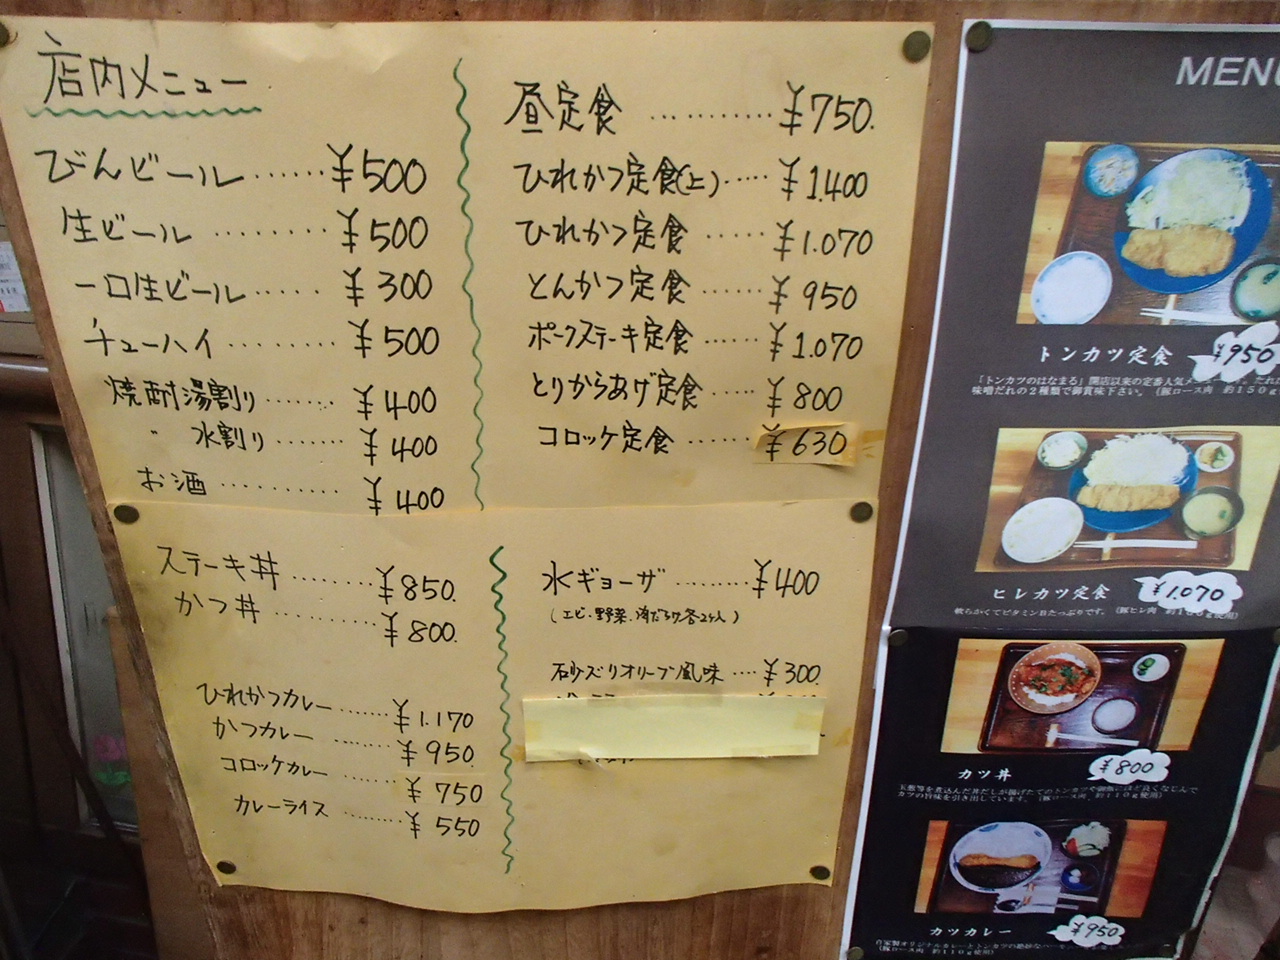 店内メニュー
びんビール……¥500
生ビール………¥500
一口生ビール……¥300
チューハイ………¥500
焼酎湯割り………¥400
〃 水割り………¥400
お酒…………¥400
昼定食…………¥750.
ひれかつ定食(上)……¥1.400
ひれかつ定食……¥1.070
とんかつ定食……¥950
ポークステーキ定食……¥1.070
とりからあげ定食……¥800
コロッケ定食……¥630
ステーキ丼………¥850.
かつ丼…………¥800.
ひれかつカレー……¥1.170
かつカレー………¥950
コロッケカレー………¥750
カレーライス………¥550
水ギョーザ………¥400
(エビ・野菜.肉だらけ各2ケ入)
砂ズリオリーブ風味…¥300
MENU
トンカツ定食 ¥950
「トンカツのはなまる」開店以来の定番人気メ
味噌だれの2種類で御賞味下さい。(豚ロース肉 約150g
ヒレカツ定食 ¥1.070
軟らかくてビタミンBたっぷりです。(豚ヒレ肉
カツ丼 ¥800
玉葱等を煮込んだ丼だしが揚げたてのトンカツや御飯にほど良くなじんで
カツの旨味を引き出しています。(豚ロース肉 約110g使用)
カツカレー ¥950
自家製オリジナルカレーとトンカツの絶妙なハーモ
豚ロース肉 約110g使用)